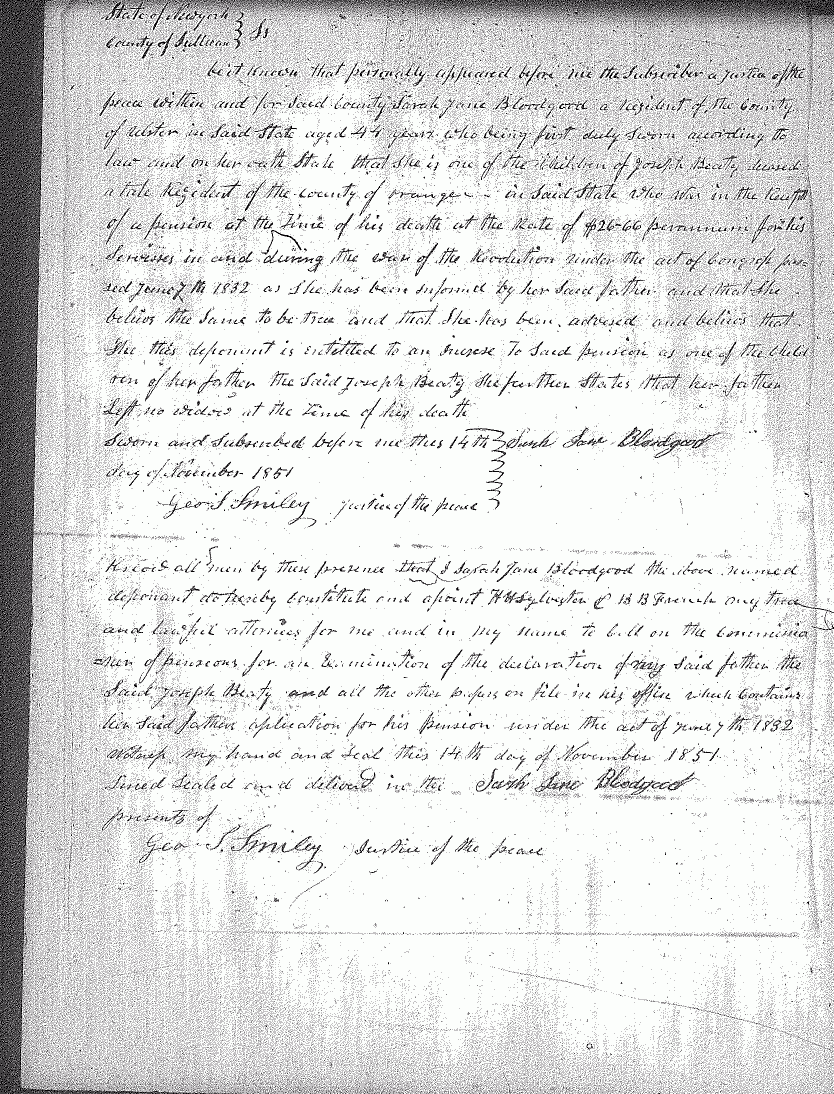 State of Newyork } Ss
County of Sullivan
beit Known that personally appeared before me the Subscriber a Justice of the
peace within and for Said County Sarah Jane Bloodgood a Resident of the County
of ulster in Said State aged 44 years who being first duly Sworn according to
law and on her oath State that She is one of the Children of Joseph Beaty deceased
a late Resident of the county of orange in Said State who was in the
of a pension at the Time of his death at the Rate of $26-66 perannum for his
Servises in and during the war of the Revolution under the act of Congress pas
sed June 7th 1832 as She has been informed by her Said father and that She
belivs the Same to be true and that She has been advised and belivs that
She this deponent is entitled to an Increse To Said pension as one of the Child
ren of her father the Said Joseph Beaty She further States that her father
Left no widow at the Time of his death
Sworn and Subscribed before me this 14th } Sarah Jane Bloodgood
day of November 1851
Geo. S. Smiley Justice of the peace
Know all men by these presence that I Sarah Jane Bloodgood the above named
deponant do hereby Constitute and apoint H H Sylvester & B B French my true
and lawful attornies for me and in my name to Call on the Commissio
=ner of pensions for an Examination of the declaration of my Said father the
Said Joseph Beaty and all the other papers on file in his office which Contains
her Said fathers aplication for his Pension under the act of June 7th 1832
Witness my hand and Seal this 14th day of November 1851
Sined Sealed and deliverd in the Sarah Jane Bloodgood
presents of
Geo. S. Smiley Justice of the peace